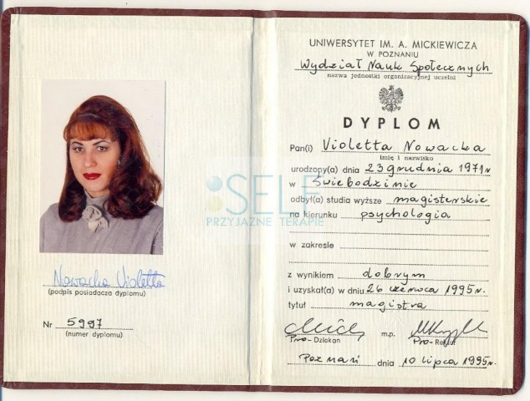 UNIWERSYTET IM. A. MICKIEWICZA
W POZNANIU
Wydział Nauk Społecznych
nazwa jednostki organizacyjnej uczelni
DYPLOM
Pan(i) Violetta Nowacka
imię i nazwisko
urodzony(a) dnia 23 grudnia 1971 r.
w Świebodzinie
odbył(a) studia wyższe magisterskie
na kierunku psychologia
w zakresie
z wynikiem dobrym
i uzyskał(a) w dniu 26 czerwca 1995 r.
tytuł magistra
m.p.
Pro-Dziekan Pro-Rektor
Poznań dnia 10 lipca 1995 r.
Nowacka Violetta
(podpis posiadacza dyplomu)
Nr 5997
(numer dyplomu)
SELF
PRZYJAZNE TERAPIE